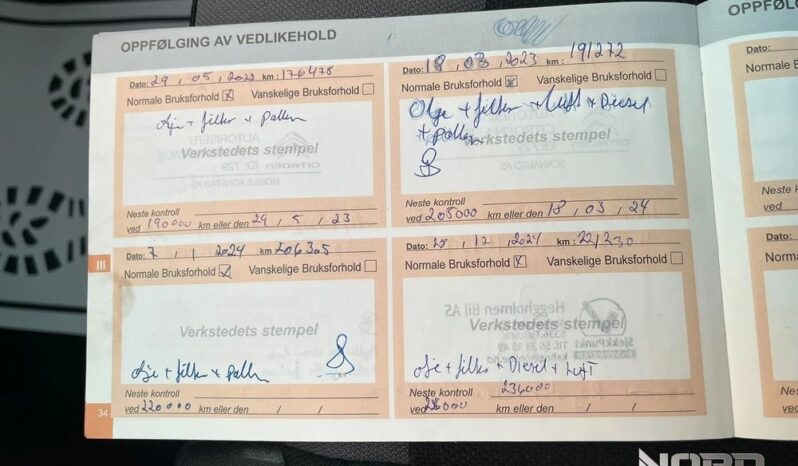 OPPFØLGING AV VEDLIKEHOLD
Dato: 29 , 05 , 2022 km : 176478
Normale Bruksforhold ☒ Vanskelige Bruksforhold ☐
olje + filter + Pollen
Verkstedets stempel
Neste kontroll
ved 190000 km eller den 29 , 5 , 23
Dato: 18 , 03 , 2023 km : 191272
Normale Bruksforhold ☒ Vanskelige Bruksforhold ☐
Olje + filter + Luft + Diesel
+ pollen
Verkstedets stempel
Neste kontroll
ved 205000 km eller den 18 , 03 , 24
III
Dato: 7 , 1 , 2024 km : 206305
Normale Bruksforhold ☑ Vanskelige Bruksforhold ☐
Verkstedets stempel
olje + filter + Pollen
Neste kontroll
ved 220000 km eller den / /
Dato: , 12 , 2024 km :
Normale Bruksforhold ☒ Vanskelige Bruksforhold ☐
Verkstedets stempel
olje + filter + Diesel + Luft
Neste kontroll 236000
ved km eller den / /
34
OPPFØLG
Dato:
Normale B
Neste k
ved
Dato:
Norma
Neste
ved
NORD